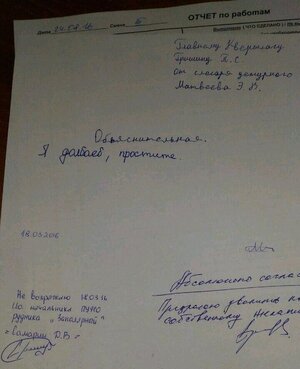 ОТЧЕТ по работам
Дата 24.03.16 Смена Б
Главному
Гришину П.С.
от слесаря дежурного
Матвеева Э.В.
Объяснительная.
Я долбаеб, простите.
18.03.2016
Не возражаю 18.03.16
И.о. начальника
рудника "Заполярный"
Самарин Д.В.
Абсолютно соглас
Предлагаю уволить по
собственному желанию